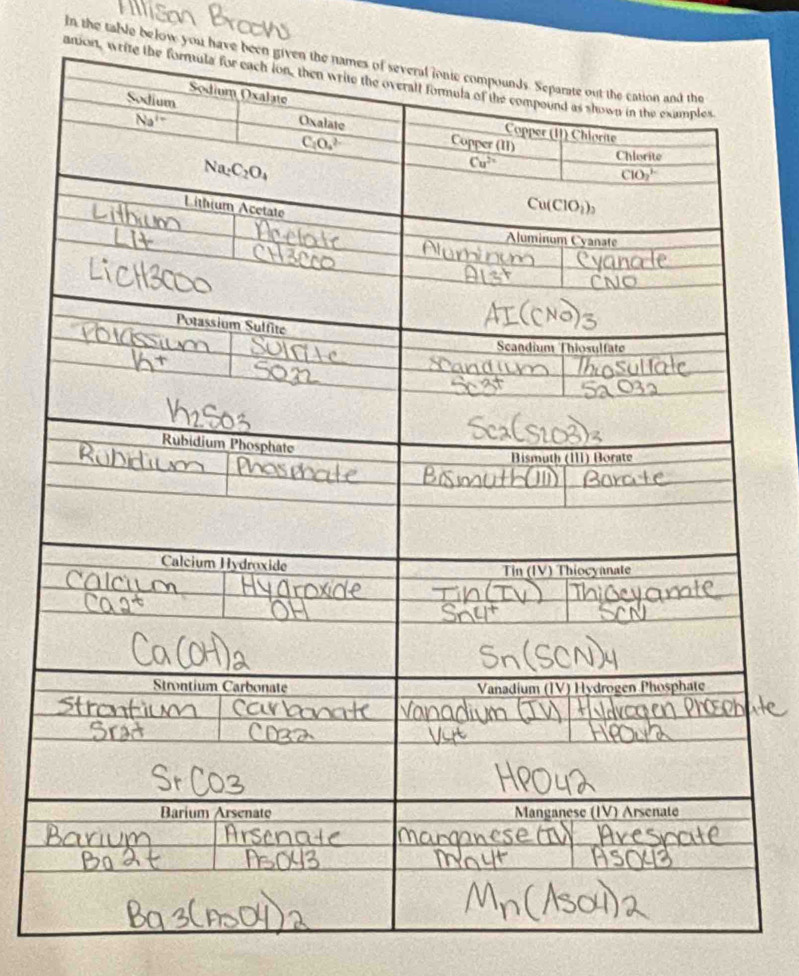 Allison Brooks
In the table below you have been given the names of several ionic compounds. Separate out the cation and the
anion, write the formula for each ion, then write the overall formula of the compound as shown in the examples.
Sodium Oxalate
Sodium Oxalate
Na¹⁺ C₂O₄²⁻
Na₂C₂O₄
Copper (II) Chlorite
Copper (II) Chlorite
Cu²⁺ ClO₂¹⁻
Cu(ClO₂)₂
Lithium Acetate
Lithium Acetate
Li+ CH3COO
LiCH3COO
Aluminum Cyanate
Aluminum Cyanate
Al3+ CNO
Al(CNO)3
Potassium Sulfite
Potassium Sulfite
K+ SO32
K2SO3
Scandium Thiosulfate
Scandium Thiosulfate
Sc3+ S2O32
Sc2(S2O3)3
Rubidium Phosphate
Rubidium Phosphate
Bismuth (III) Borate
Bismuth(III) Borate
Calcium Hydroxide
Calcium Hydroxide
Ca2+ OH
Ca(OH)2
Tin (IV) Thiocyanate
Tin(IV) Thiocyanate
Sn4+ SCN
Sn(SCN)4
Strontium Carbonate
Strontium Carbonate
Sr2+ CO32
SrCO3
Vanadium (IV) Hydrogen Phosphate
Vanadium (IV) Hydrogen Phosphate
V4+ HPO42
HPO42
Barium Arsenate
Barium Arsenate
Ba2+ AsO43
Ba3(AsO4)2
Manganese (IV) Arsenate
manganese (IV) Aresnate
Mn4+ AsO43
Mn(AsO4)2